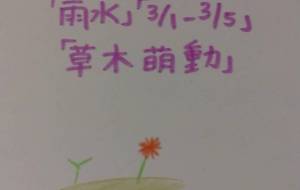 「雨水」「3/1-3/5」
「草木萌動」